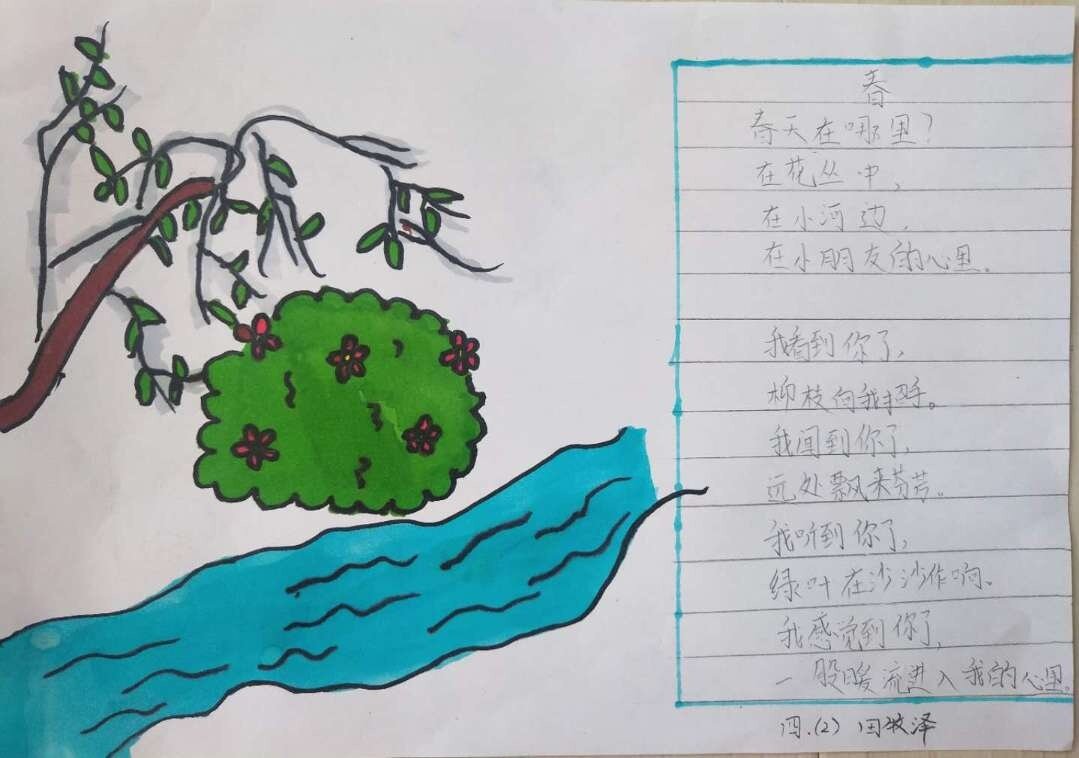 春
春天在哪里?
在花丛中,
在小河边,
在小朋友的心里。
我看到你了,
柳枝向我招手。
我闻到你了,
远处飘来芬芳。
我听到你了,
绿叶在沙沙作响。
我感觉到你了,
一股暖流进入我的心里。
四.(2) 田 泽